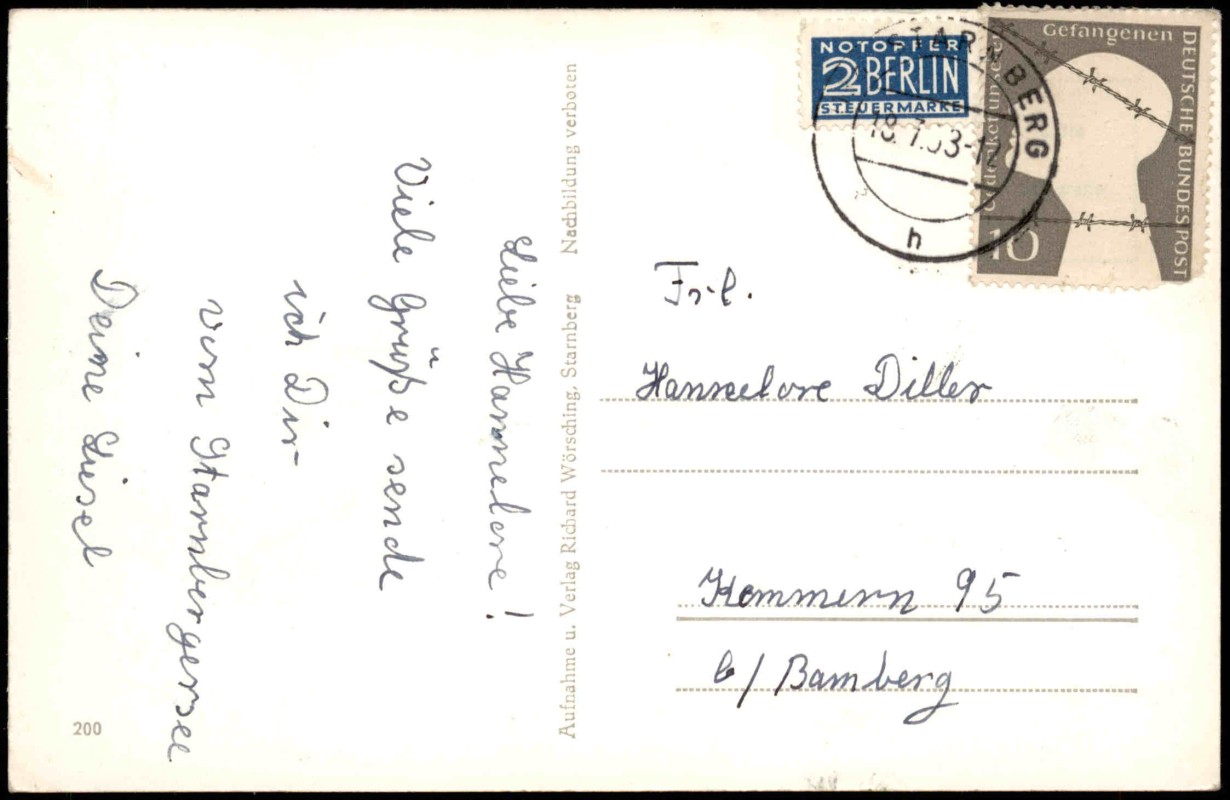 Liebe Hannelore!
Viele Grüße sende
ich Dir
vom Starnbergersee
Deine Liesel
200
Aufnahme u. Verlag Richard Wörsching, Starnberg Nachbildung verboten
NOTOPFER
2 BERLIN
STEUERMARKE
STARNBERG
18.7.53-12
h
Gedenket unserer
Gefangenen
DEUTSCHE BUNDESPOST
10
Frl.
Hannelore Diller
Kemmern 95
b/Bamberg